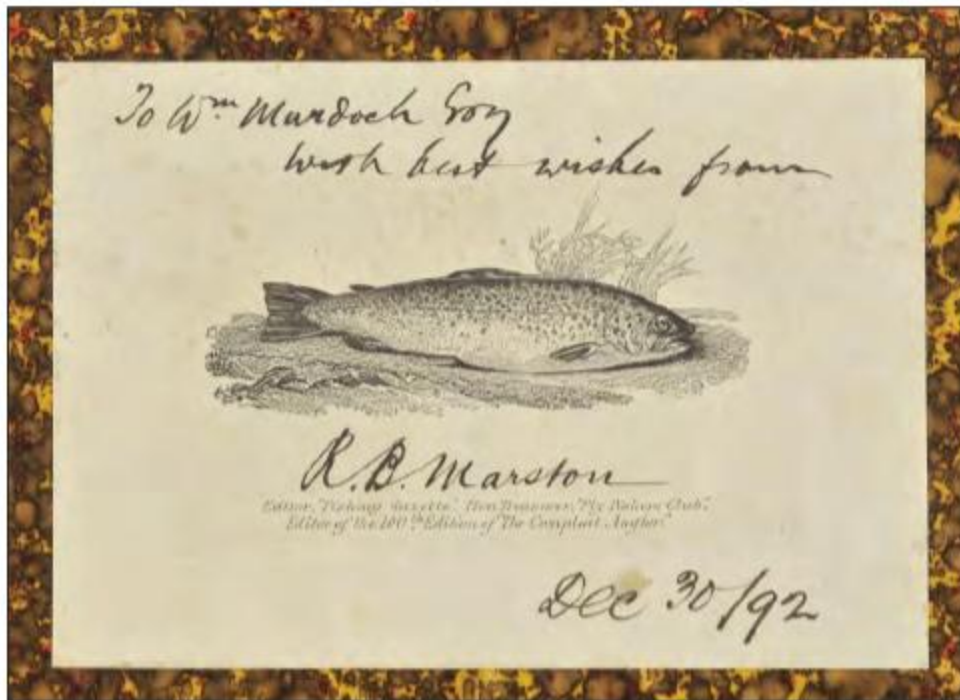 To Wm Murdoch Esq
with best wishes from
R. B. Marston
Editor, "Fishing Gazette." Hon. Treasurer, "Fly Fishers Club."
Editor of the 100th Edition of "The Compleat Angler."
Dec 30/92